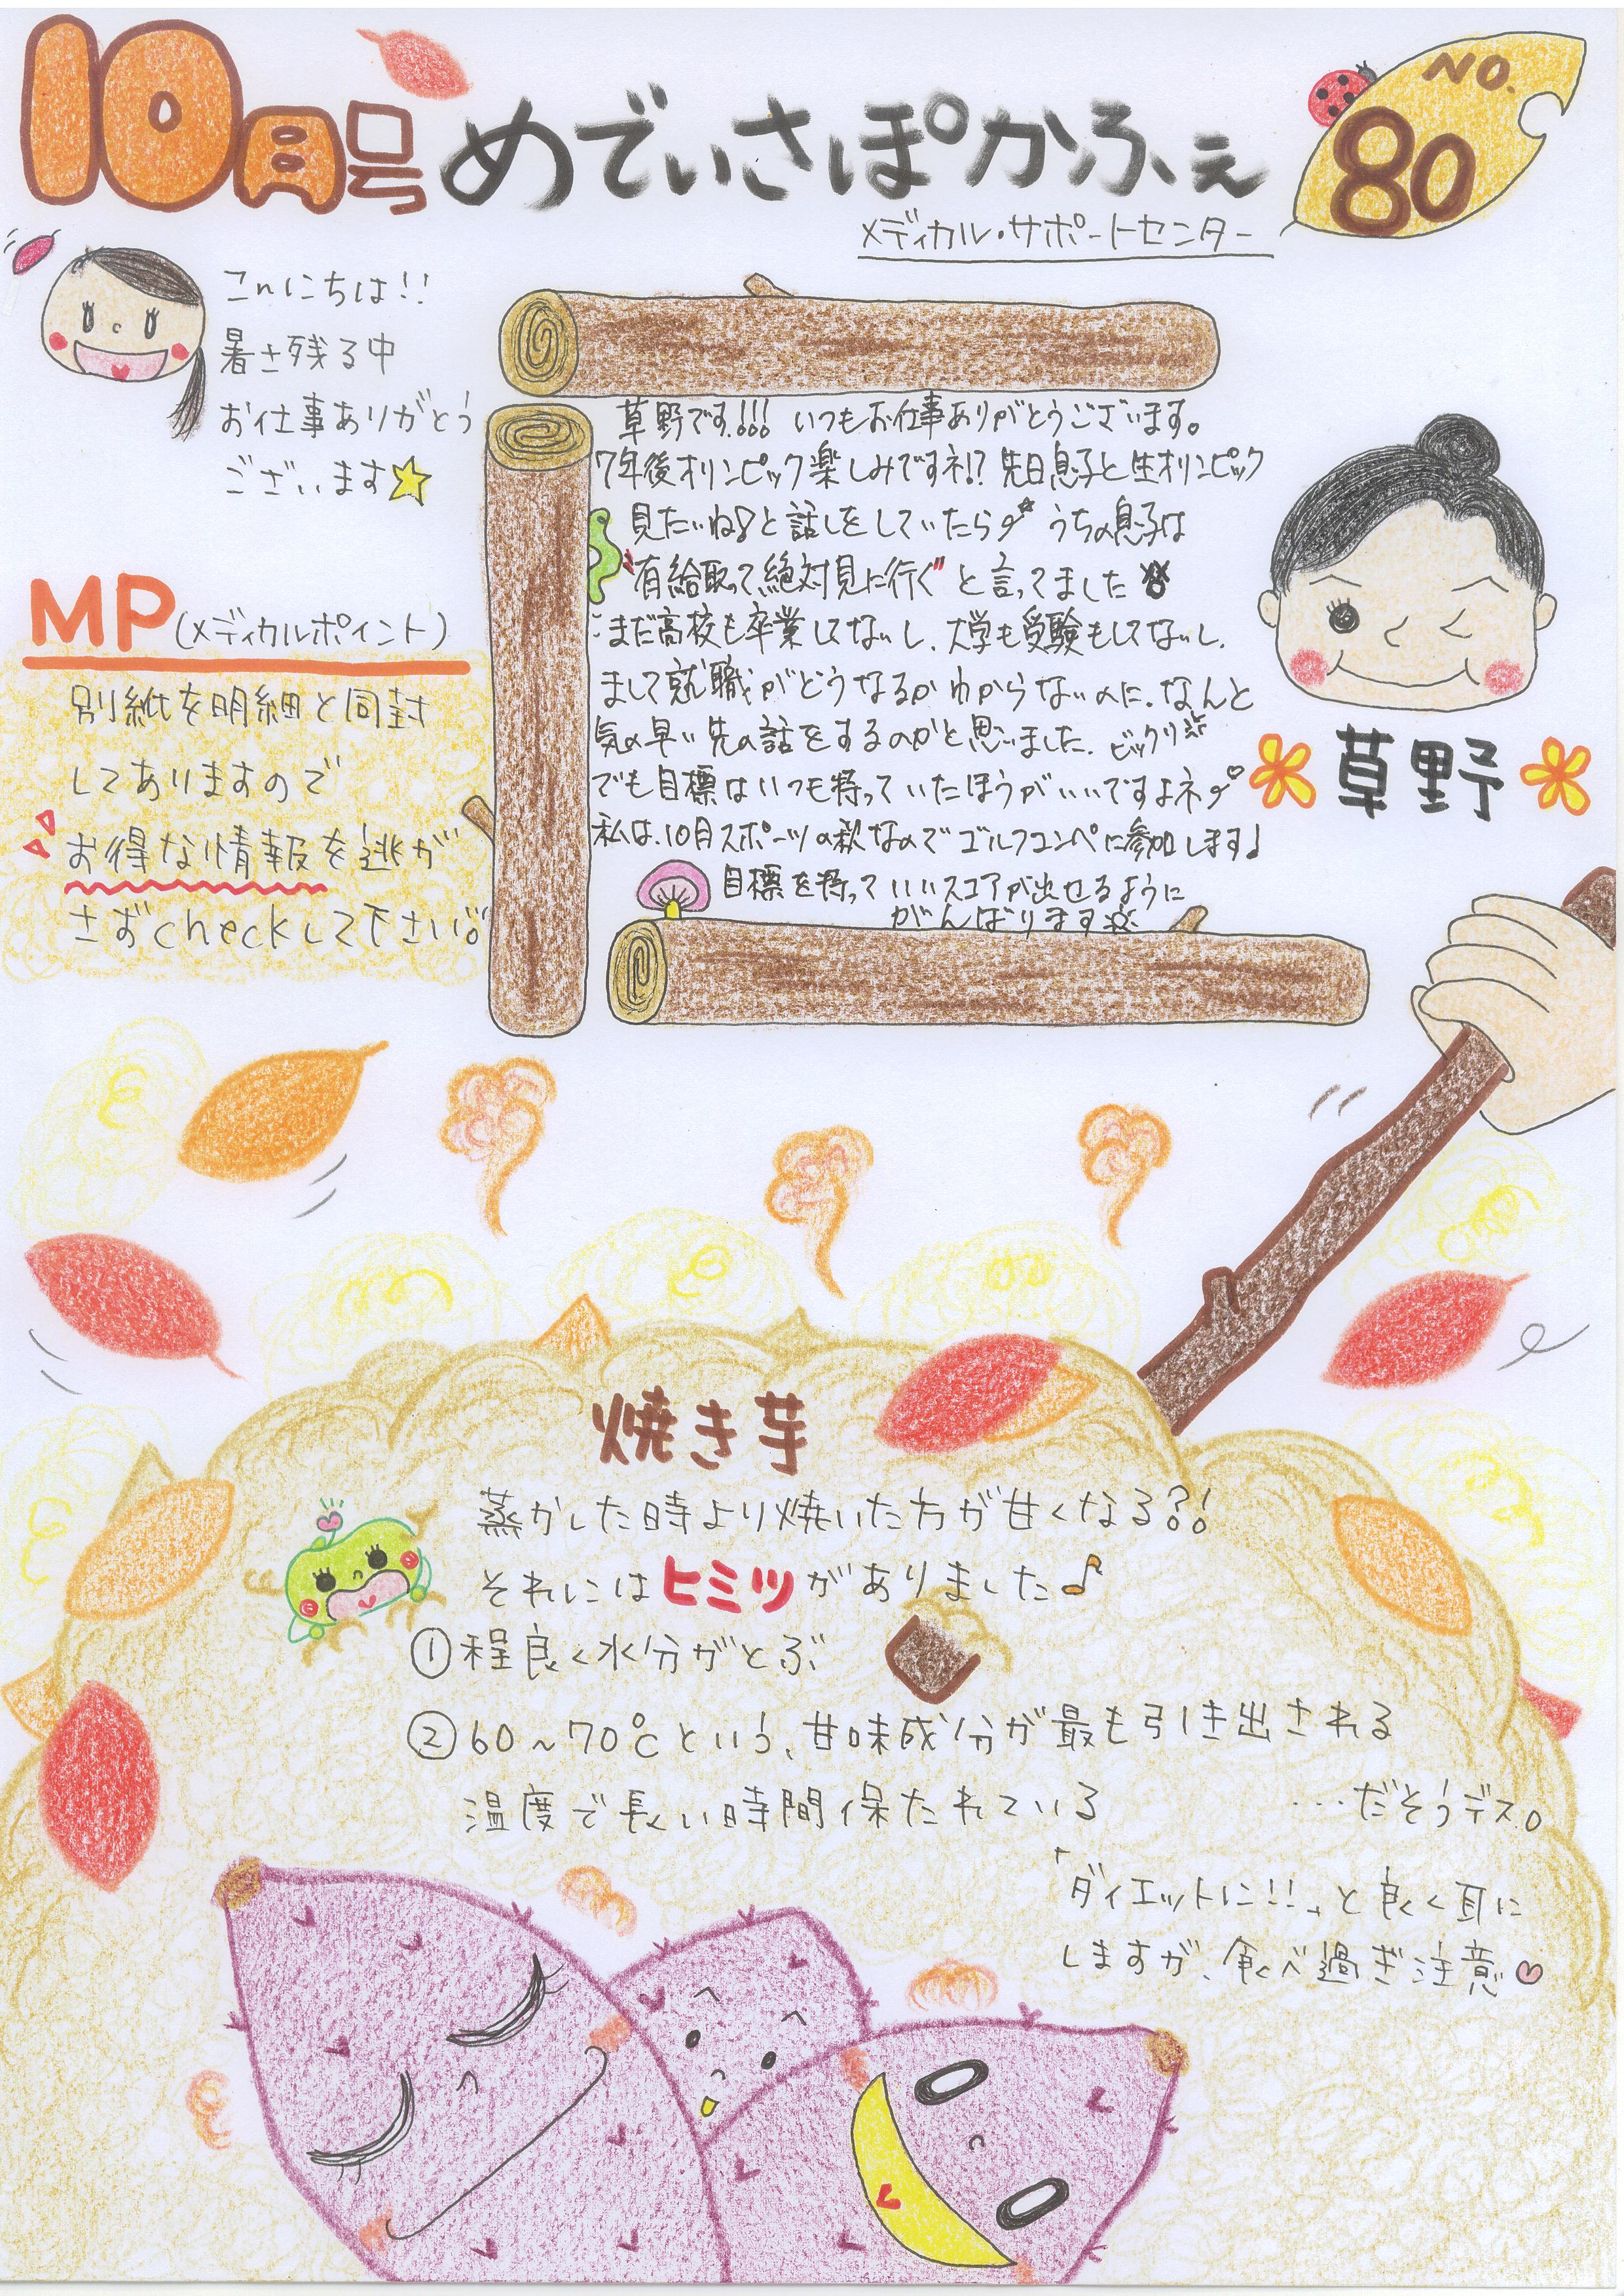 10月号
めでぃさぽかふぇ
NO.
80
メディカル・サポートセンター
こんにちは!!
暑さ残る中
お仕事ありがとう
ございます☆
MP(メディカルポイント)
別紙を明細と同封
してありますので
お得な情報を逃が
さずcheckして下さい。
草野です!!! いつもお仕事ありがとうございます。
7年後オリンピック楽しみですネ!? 先日息子と生オリンピック
見たいね♪と話しをしていたら うちの息子は
"有給取って絶対見に行ぐ"と言ってました
まだ高校も卒業してないし、大学も受験もしてないし、
まして就職がどうなるかわからないのに、なんと
気の早い先の話をするのかと思いました。ビックリ
でも目標はいつも持っていたほうがいいですよネ
私は、10月スポーツの秋なのでゴルフコンペに参加します♩
目標を持っていいスコアが出せるように
がんばります
草野
焼き芋
蒸かした時より焼いた方が甘くなる?!
それにはヒミツがありました♪
①程良く水分がとぶ
②60~70℃という、甘味成分が最も引き出される
温度で長い時間保たれている
...だそうデス。
「ダイエットに!!」と良く耳に
しますが、食べ過ぎ注意♡